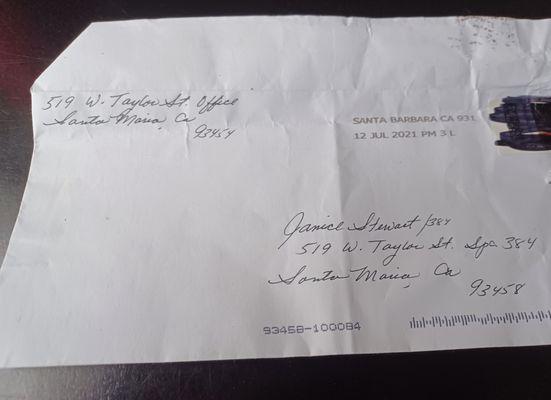 519 W. Taylor St. Office
Santa Maria, Ca
93454
SANTA BARBARA CA 931
12 JUL 2021 PM 3 L
Janice Stewart /384
519 W. Taylor St. Spc 384
Santa Maria, Ca
93458
93458-100084